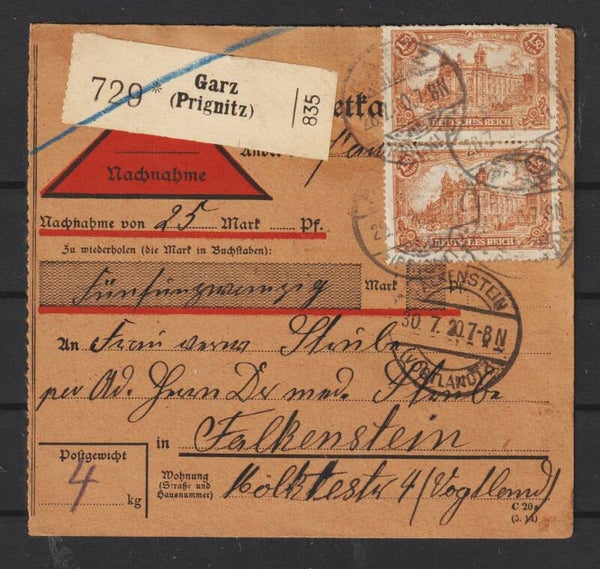 729 * Garz
(Prignitz)
835
etka
Nachnahme
DEUTSCHES REICH
DEUTSCHES REICH
Nachnahme von 25 Mark Pf.
Zu wiederholen (die Mark in Buchstaben):
Fünfunzwanzig Mark Pf.
FALKENSTEIN
30.7.20.7-8N
(VOGTLAND)
An Frau verw Strube
per Ad. Herrn Dr med. Strube
in Falkenstein
Postgewicht
4 kg
Wohnung
(Straße und
Hausnummer)
4 (Vogtland)
C 20a
(5. 14)